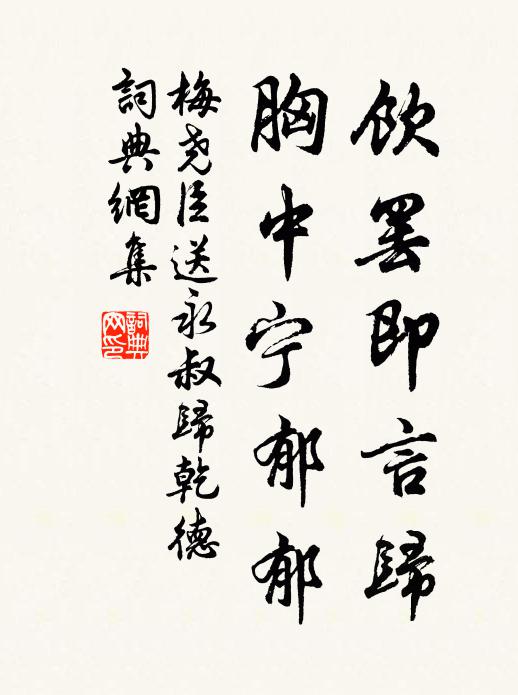 飲罷即言歸
胸中宁郁郁
梅尧臣送永叔歸乾德
詞典網集
詞典网印